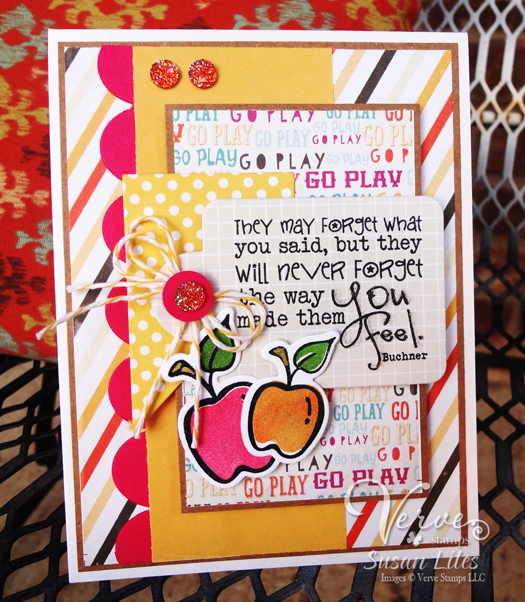 GO PLAY GO PLAY GO PLAY
GO PLAY GO PLAY GO PLAY
GO PLAY GO PLAY
GO PLAY
They may forget what
you said, but they
will never forget
the way you
made them feel.
Buchner
GO PLAY
GO PLAY
GO PLAY
GO PLAY
GO PLAY
Verve
stamps
Susan Liles
Images © Verve Stamps LLC